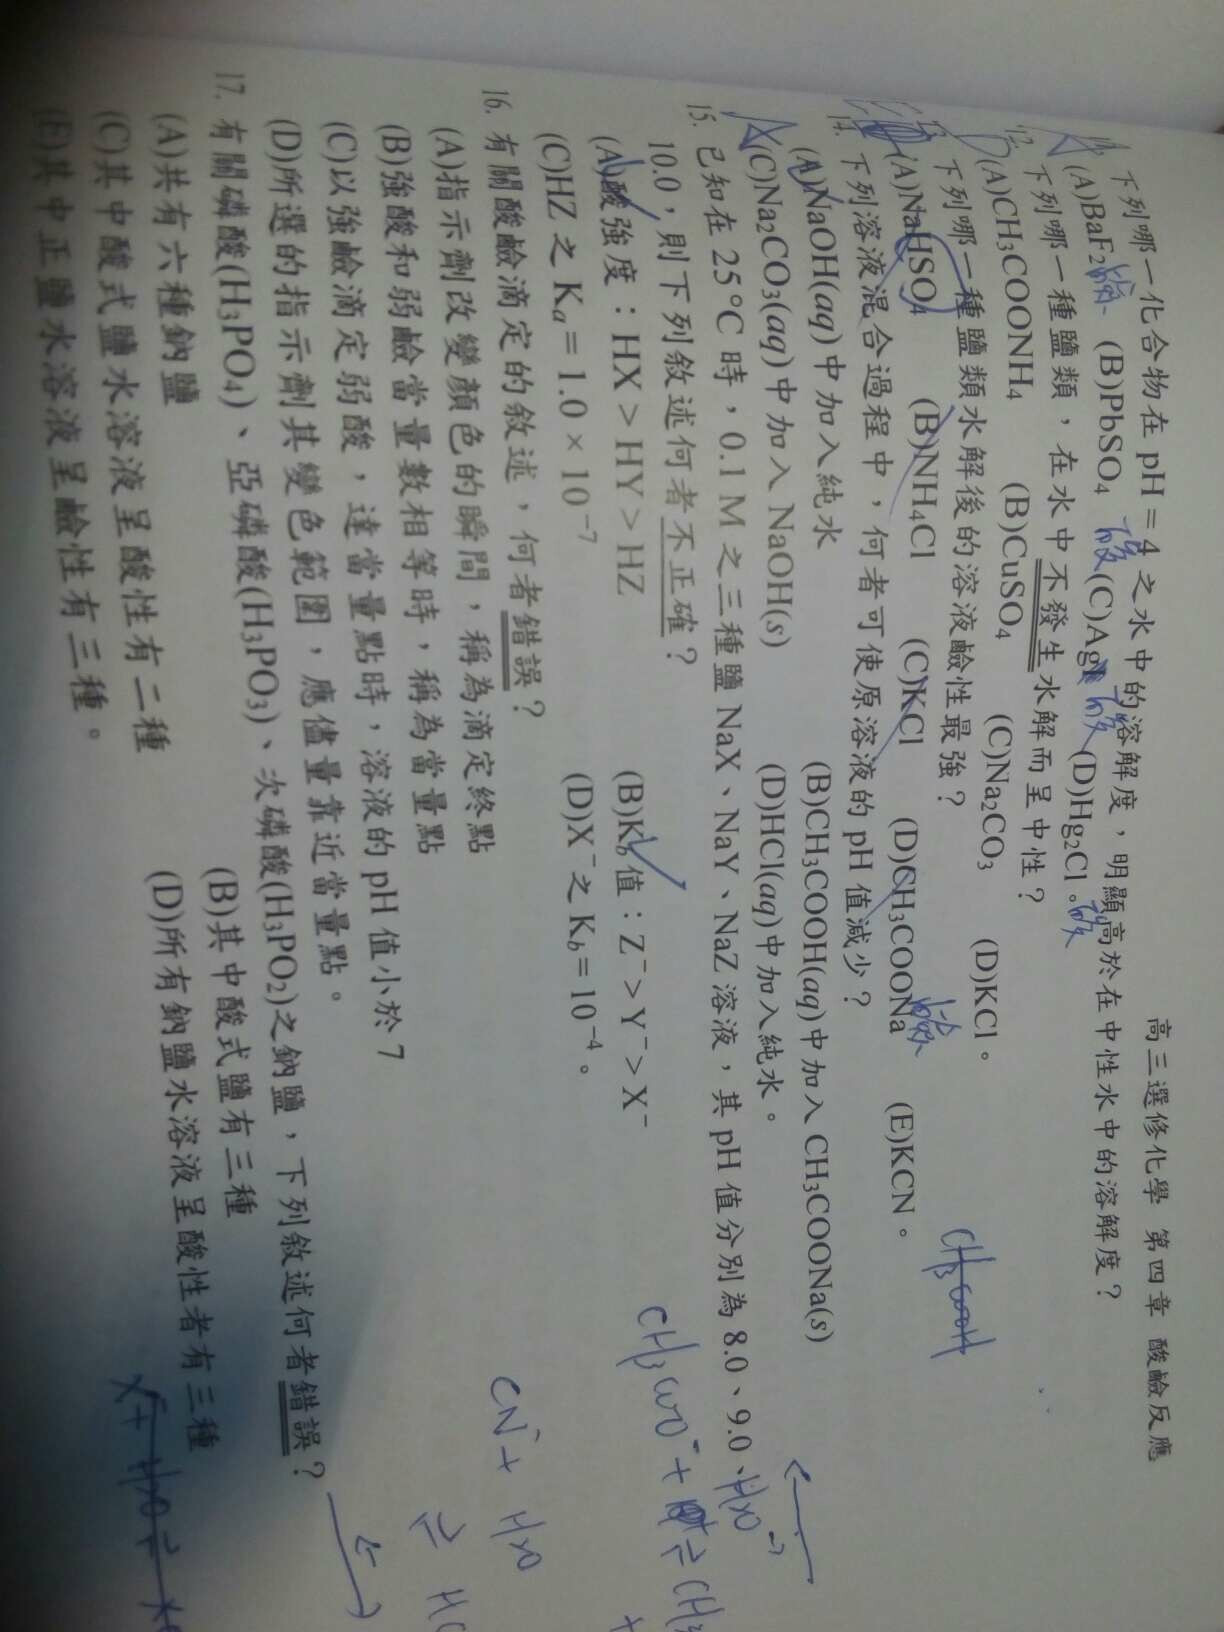 高三選修化學 第四章 酸鹼反應
下列哪一化合物在 pH = 4 之水中的溶解度，明顯高於在中性水中的溶解度？
(A)BaF2 (B)PbSO4 (C)AgI (D)Hg2Cl。
12. 下列哪一種鹽類，在水中不發生水解而呈中性？
(A)CH3COONH4 (B)CuSO4 (C)Na2CO3 (D)KCl。
下列哪一種鹽類水解後的溶液鹼性最強？
(A)NaHSO4 (B)NH4Cl (C)KCl (D)CH3COONa (E)KCN。
14. 下列溶液混合過程中，何者可使原溶液的 pH 值減少？
(A)NaOH(aq)中加入純水 (B)CH3COOH(aq)中加入 CH3COONa(s)
(C)Na2CO3(aq)中加入 NaOH(s) (D)HCl(aq)中加入純水。
15. 已知在 25°C 時，0.1 M 之三種鹽 NaX、NaY、NaZ 溶液，其 pH 值分別為 8.0、9.0、
10.0，則下列敘述何者不正確？
(A)酸強度：HX > HY > HZ (B)Kb 值：Z⁻ > Y⁻ > X⁻
(C)HZ 之 Ka = 1.0 × 10⁻⁷ (D)X⁻之 Kb = 10⁻⁴。
16. 有關酸鹼滴定的敘述，何者錯誤？
(A)指示劑改變顏色的瞬間，稱為滴定終點
(B)強酸和弱鹼當量數相等時，稱為當量點
(C)以強鹼滴定弱酸，達當量點時，溶液的 pH 值小於 7
(D)所選的指示劑其變色範圍，應儘量靠近當量點。
17. 有關磷酸(H3PO4)、亞磷酸(H3PO3)、次磷酸(H3PO2)之鈉鹽，下列敘述何者錯誤？
(A)共有六種鈉鹽 (B)其中酸式鹽有三種
(C)其中酸式鹽水溶液呈酸性有二種 (D)所有鈉鹽水溶液呈酸性者有三種
(E)其中正鹽水溶液呈鹼性有三種。
CH3COOH
CH3COO⁻ +
CN⁻ + H2O
⇌